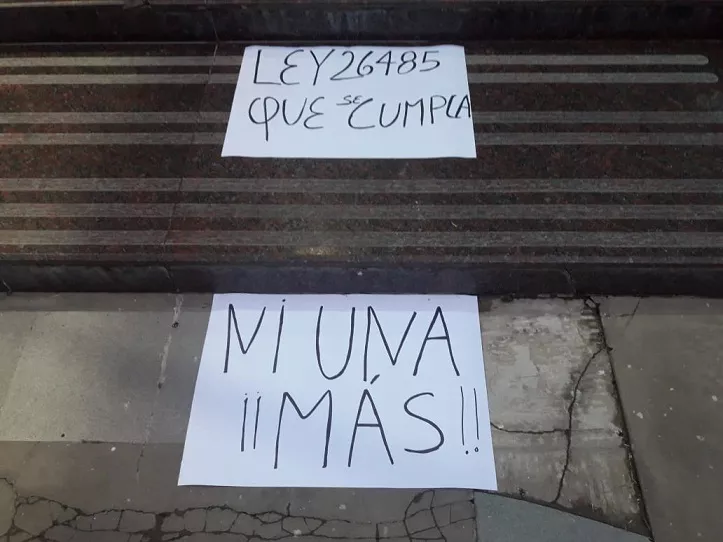 LEY 26485
QUE se CUMPLA
NI UNA
¡¡MÁS!!